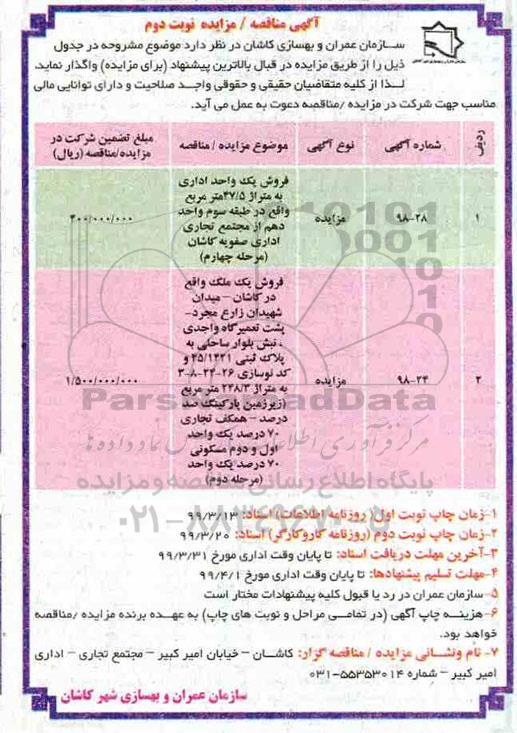 آگهی مناقصه / مزایده نوبت دوم
سازمان عمران و بهسازی کاشان در نظر دارد موضوع مشروحه در جدول
ذیل را از طریق مزایده در قبال بالاترین پیشنهاد (برای مزایده) واگذار نماید.
لذا از کلیه متقاضیان حقیقی و حقوقی واجد صلاحیت و دارای توانایی مالی
مناسب جهت شرکت در مزایده /مناقصه دعوت به عمل می آید.
ردیف
شماره آگهی
نوع آگهی
موضوع مزایده / مناقصه
مبلغ تضمین شرکت در
مزایده/مناقصه (ریال)
۱
۹۸-۲۸
مزایده
فروش یک واحد اداری
به متراژ ۴۷/۵متر مربع
واقع در طبقه سوم واحد
دهم از مجتمع تجاری
اداری صفویه کاشان
(مرحله چهارم)
۴۰۰/۰۰۰/۰۰۰
۲
۹۸-۲۴
مزایده
فروش یک ملک واقع
در کاشان – میدان
شهیدان زارع مجرد-
پشت تعمیرگاه واجدی
، نبش بلوار ساحلی به
پلاک ثبتی ۴۵/۱۴۲۱ و
کد نوسازی ۲۶-۲۴-۸-۳
به متراژ ۲۴۸/۳ متر مربع
(زیرزمین پارکینگ صد
درصد – همکف تجاری
۷۰ درصد یک واحد
اول و دوم مسکونی
۷۰ درصد یک واحد
(مرحله دوم)
۱/۵۰۰/۰۰۰/۰۰۰
ParsNamadData
مرکز فرآوری اطلاعات پارس نماد داده‌ها
پایگاه اطلاع رسانی مناقصه و مزایده
۱-زمان چاپ نوبت اول (روزنامه اطلاعات) اسناد: ۹۹/۳/۱۳
۲-زمان چاپ نوبت دوم (روزنامه کاروکارگر) اسناد: ۹۹/۳/۲۰
۳-آخرین مهلت دریافت اسناد: تا پایان وقت اداری مورخ ۹۹/۳/۳۱
۴-مهلت تسلیم پیشنهادها: تا پایان وقت اداری مورخ ۹۹/۴/۱
۵-سازمان عمران در رد یا قبول کلیه پیشنهادات مختار است
۶-هزینه چاپ آگهی (در تمامی مراحل و نوبت های چاپ) به عهده برنده مزایده /مناقصه
خواهد بود.
۷- نام ونشانی مزایده / مناقصه گزار: کاشان – خیابان امیر کبیر – مجتمع تجاری – اداری
امیر کبیر – شماره ۵۵۳۵۳۰۱۴-۰۳۱
سازمان عمران و بهسازی شهر کاشان